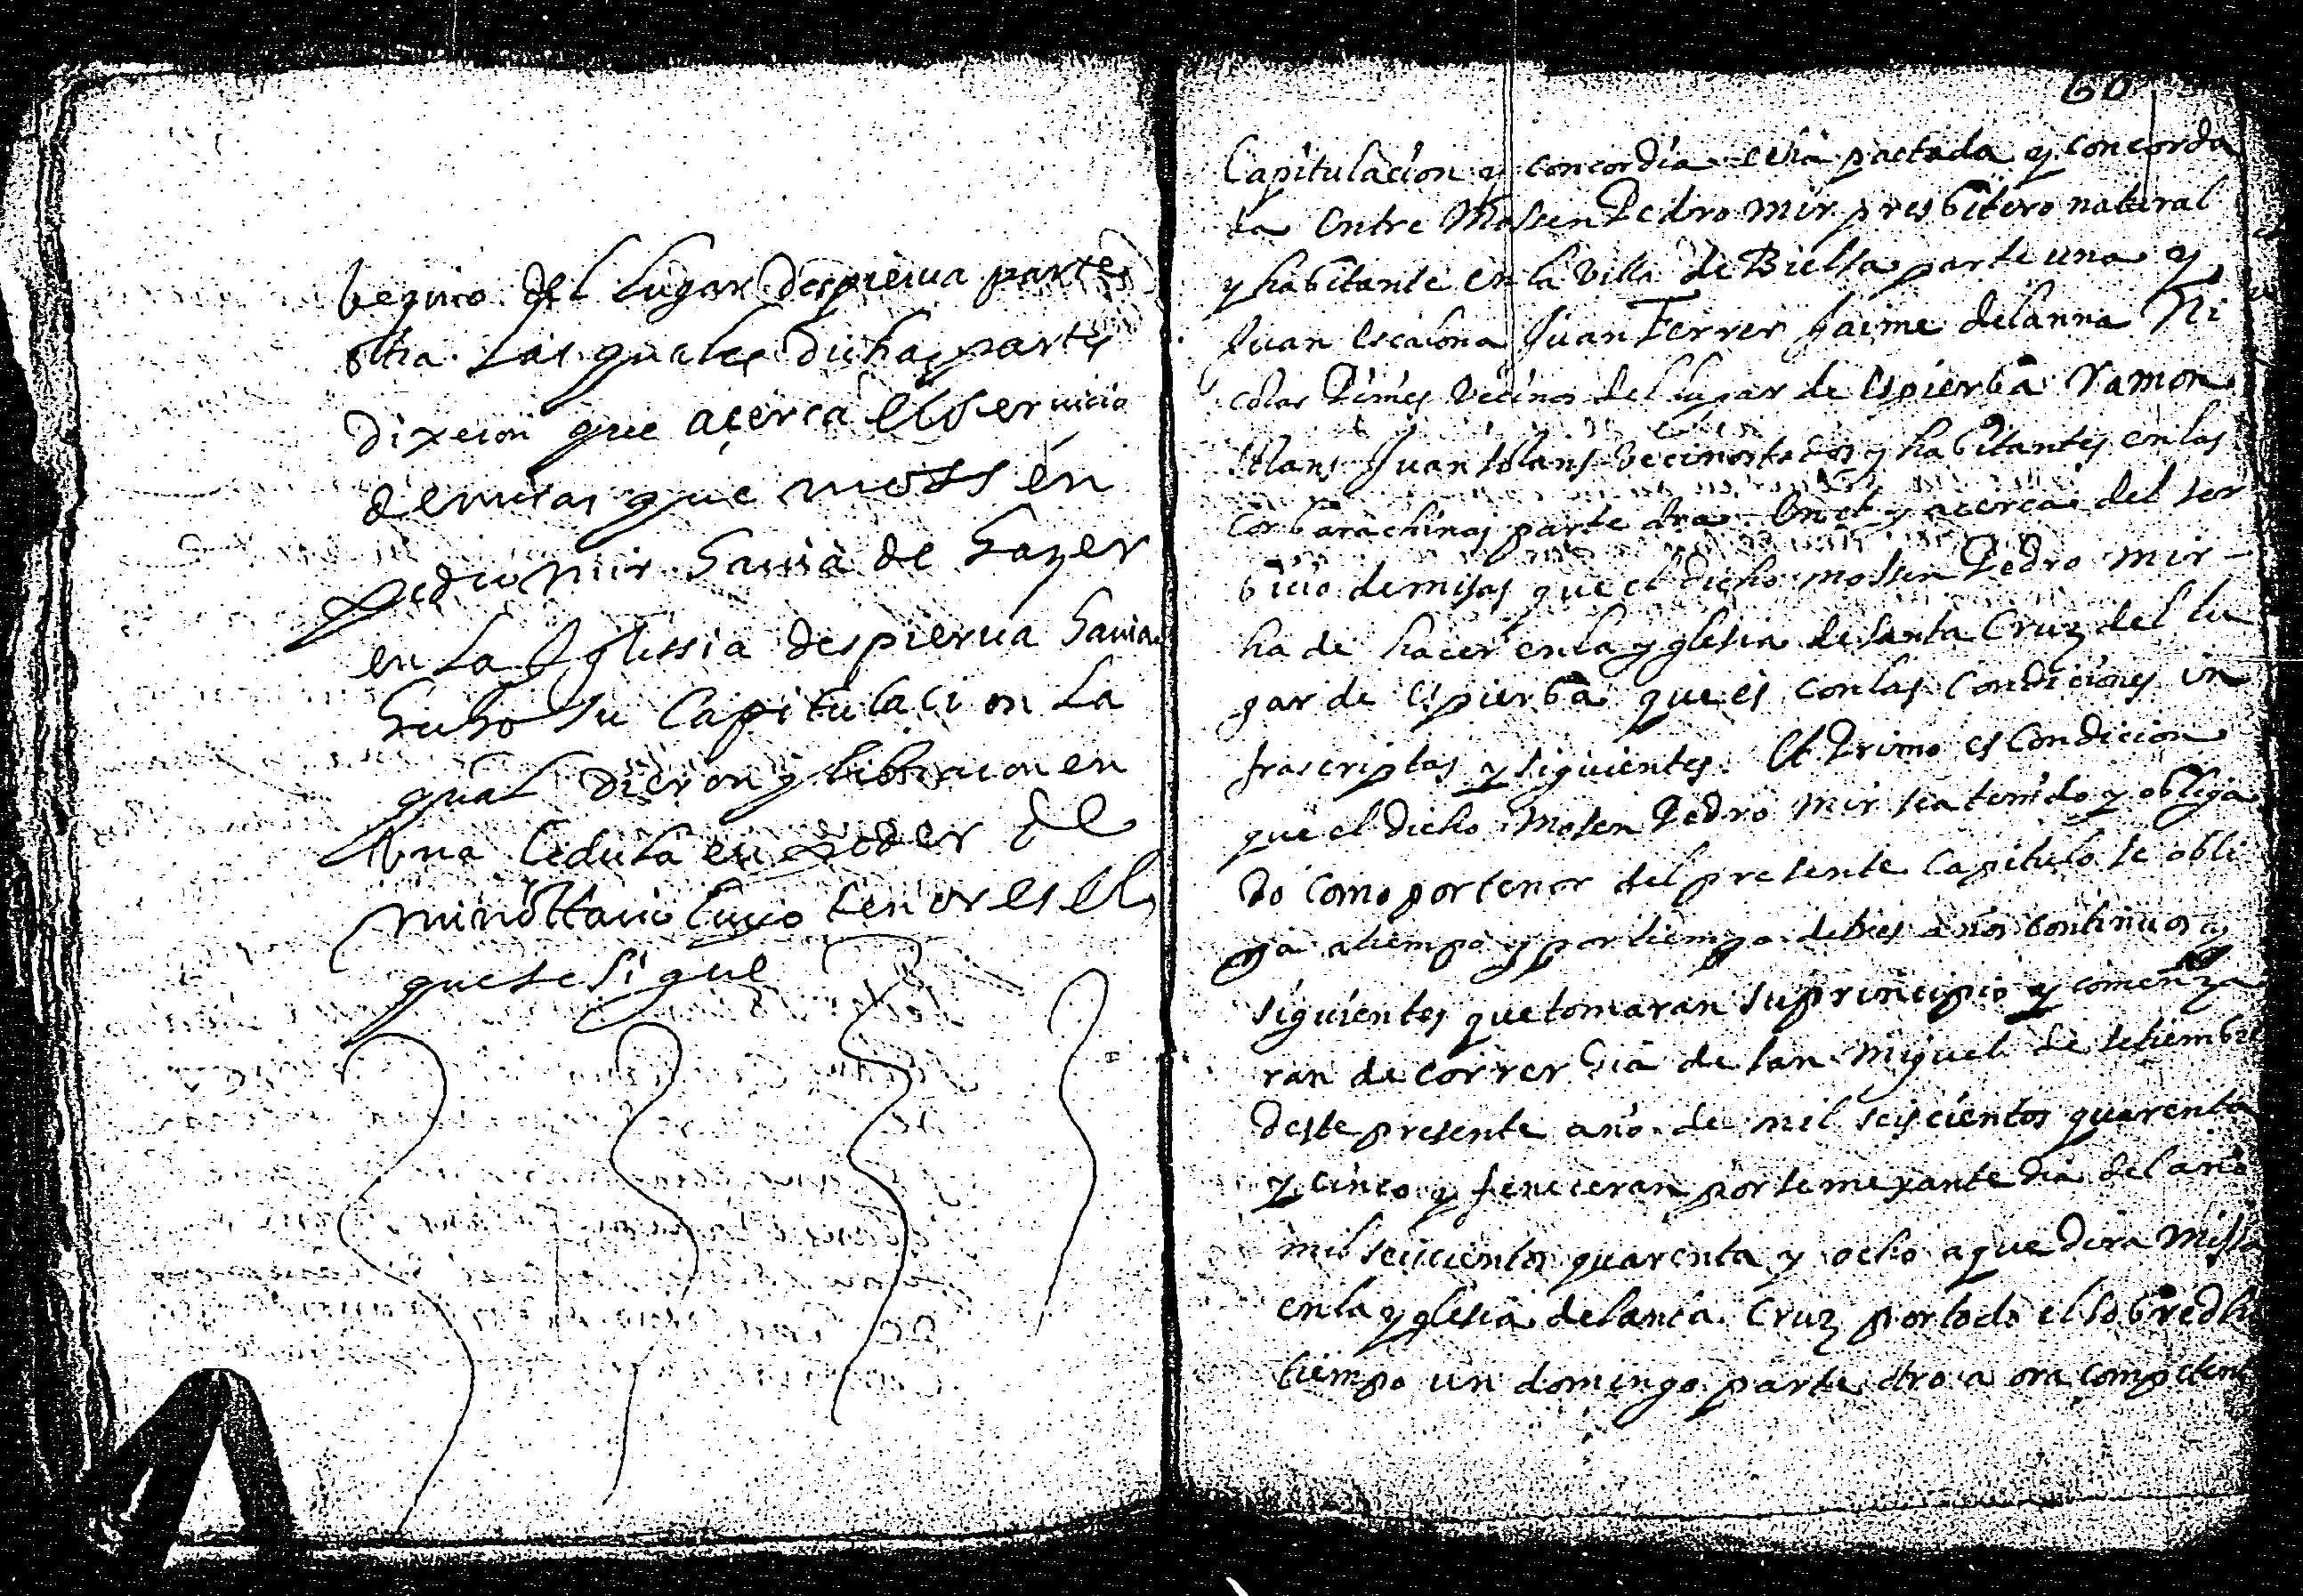 vezino del lugar despierua parte
otra. Las quales dichas partes
dixeron que açerca el seruicio
de missas que mossen
Pedro mir hauia de hazer
en La Iglessia despierua hauian
hecho su Capitulacion La
qual dieron y libraron en
Vna Cedula en poder de
mi nottario cuio tenor es el
que se sigue
60
Capitulacion y concordia echa pactada y concorda
da entre Mossen Pedro mir presbitero natural
y habitante en la villa de Bielsa parte una y
Juan escalona Juan Ferrer Jaime delanna Ni
colas vecinos del lugar de espierba Ramon
solans Juan solans vecinos todos y habitantes en las
Corbarachinas parte otra. En et y acerca del ser
bicio de misas que el dicho mossen Pedro mir
ha de hacer en la yglesia de santa Cruz del lu
gar de espierba que es con las Condiciones in
frascriptas y siguientes. Et Primo es Condicion
que el dicho mosen Pedro mir sea tenido y obliga
do como por tenor del presente Capitulo se obli
ga a tiempo y por tiempo de tres años continuos y
siguientes que tomaran su principio y comenza
ran de correr dia de san miguel de setiembre
deste presente año de mil seiscientos quarenta
y cinco y feneceran por semexante dia del año
mil seiscientos quarenta y ocho a que dira missa
en la yglesia de santa Cruz por todo el sobredho
tiempo un domingo parte otro a ora competent